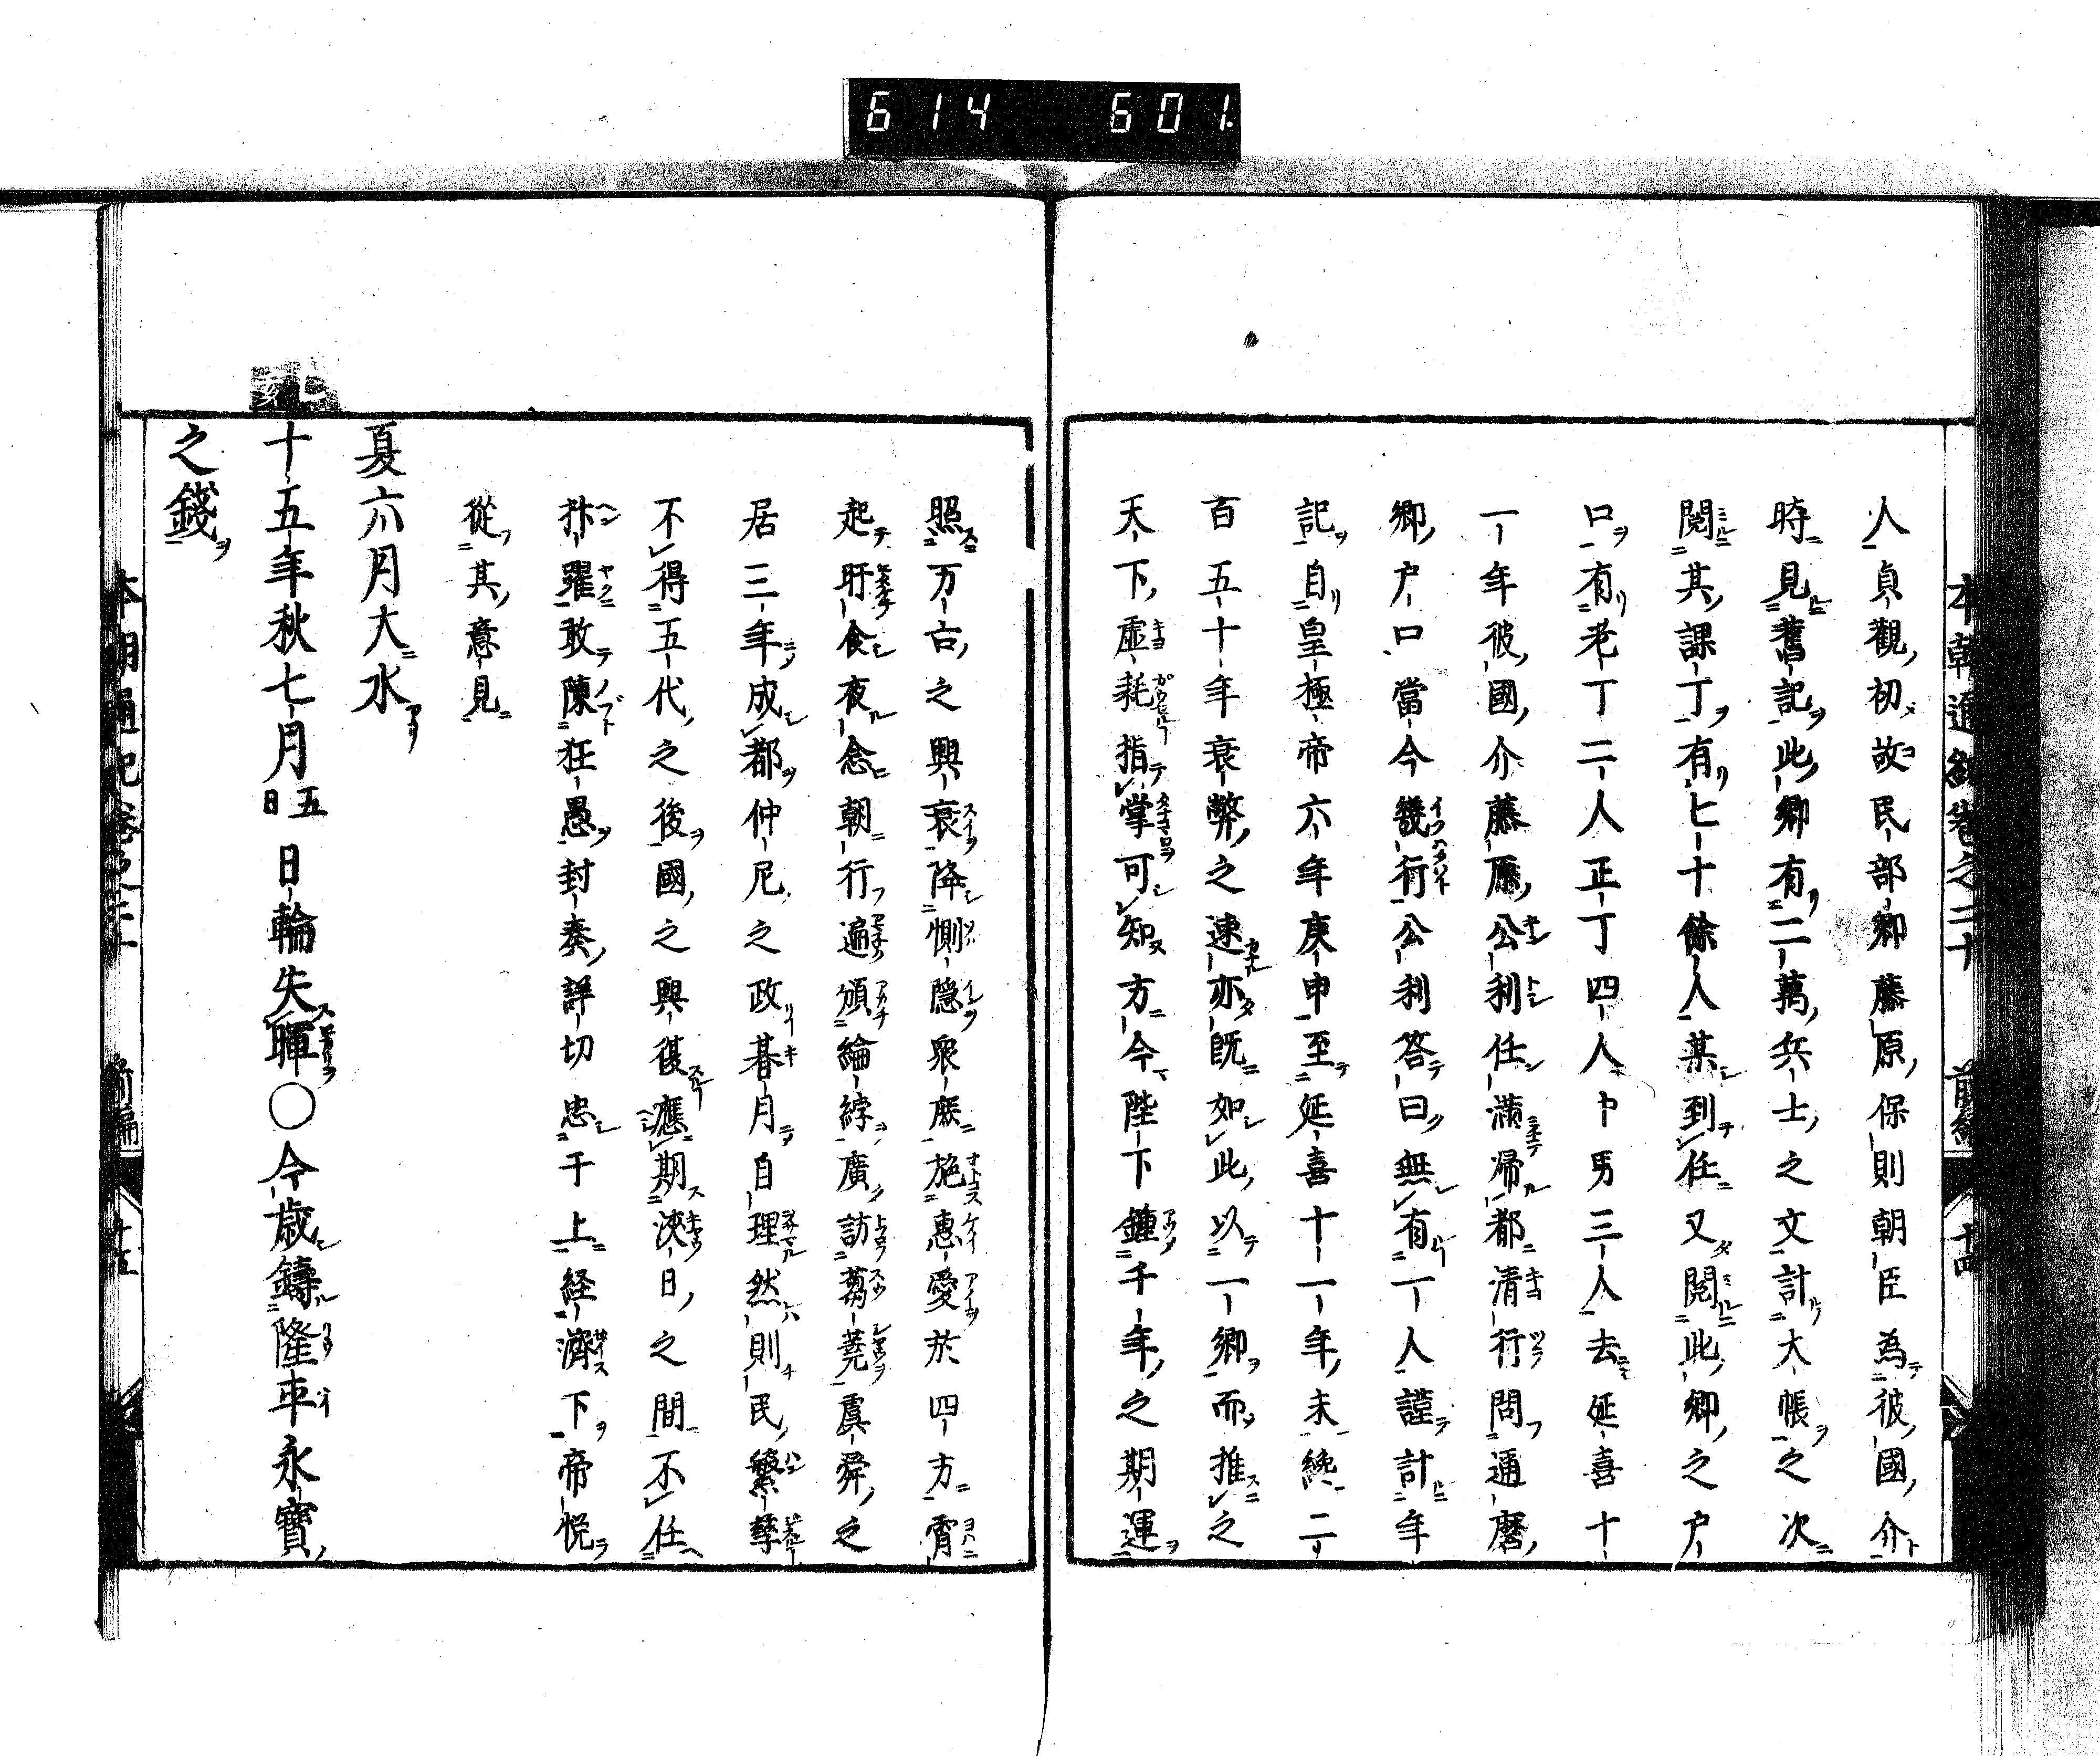 614 601
人貞觀初故民部卿藤原保則朝臣為彼國介
時見舊記此卿有二萬兵士之文計大帳之次
閲其課丁有七十餘人某到任又閲此卿之戸
口有老丁二人正丁四人中男三人去延喜十
一年彼國介藤原公利任滿帰都清行問邇磨
卿戸口當今幾何公利答曰無有一人謹計年
記自皇極帝六年庚申至延喜十一年末纔二
百五十年衰弊之速亦既如此以一卿而推之
天下虚耗指掌可知方今陛下鍾千年之期運
照万古之興衰降惻隠衆庶施惠愛於四方宵
起旰食夜念朝行遍頒綸綍廣訪蒭蕘虞舜之
居三年成都仲尼之政朞月自理然則民繁孳
不得五代之後國之興復應期浹日之間不任
抃躍敢陳狂愚封奏詳切忠于上経濟下帝悦
從其意見
夏六月大水
十五年秋七月五日日輪失暉〇今歳鑄隆平永寶
之錢
前編
十五